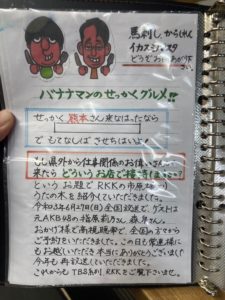 馬刺し、からしれんこん
イカスミパスタ
どうぞお召し上がり下さい。
バナナマンのせっかくグルメ!!
せっかく熊本さん来なはったなら
でもてなしばさせちはいよ!
もし県外から仕事関係のお偉いさんが
来たらどういうお店で接待しますか?
というお題でRKKの市原さんから
うたの木を紹介していただきました。
令和3年6月27日(日)全国放送で、ゲストは
元AKB48の指原莉乃さん
おかげ様で高視聴率で、全国の方から
ご予約をいただきました。この日も常連様に
もお越しいただき本当にありがとうございました
今年も再放送していただきました。
これからもTBS系列RKKをご覧下さいませ。